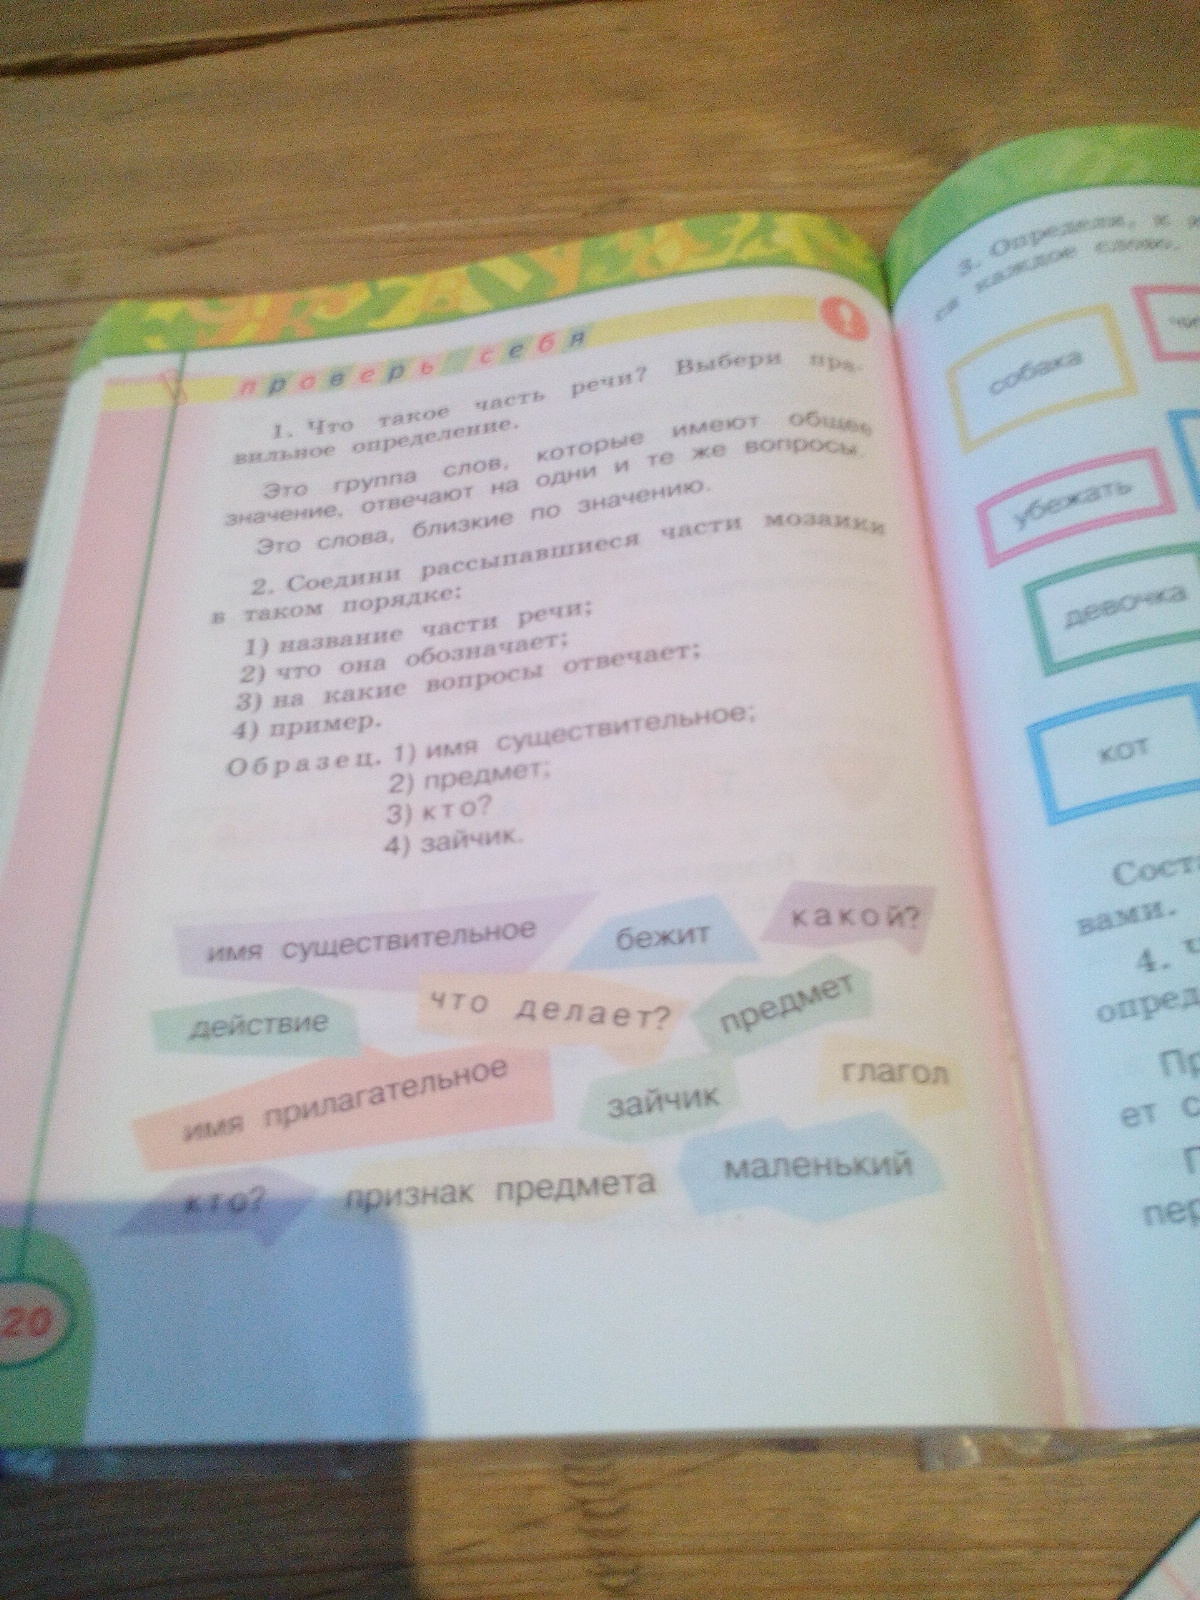 проверь себя
1. Что такое часть речи? Выбери пра-
вильное определение.
Это группа слов, которые имеют общее
значение, отвечают на одни и те же вопросы.
Это слова, близкие по значению.
2. Соедини рассыпавшиеся части мозаики
в таком порядке:
1) название части речи;
2) что она обозначает;
3) на какие вопросы отвечает;
4) пример.
Образец. 1) имя существительное;
2) предмет;
3) кто?
4) зайчик.
имя существительное
бежит
какой?
действие
что делает?
предмет
имя прилагательное
зайчик
глагол
кто?
признак предмета
маленький
20
3. Определи, к
ся каждое слово.
собака
убежать
девочка
кот
Сост
вами.
4.
опред
Пр
ет с
П
пер